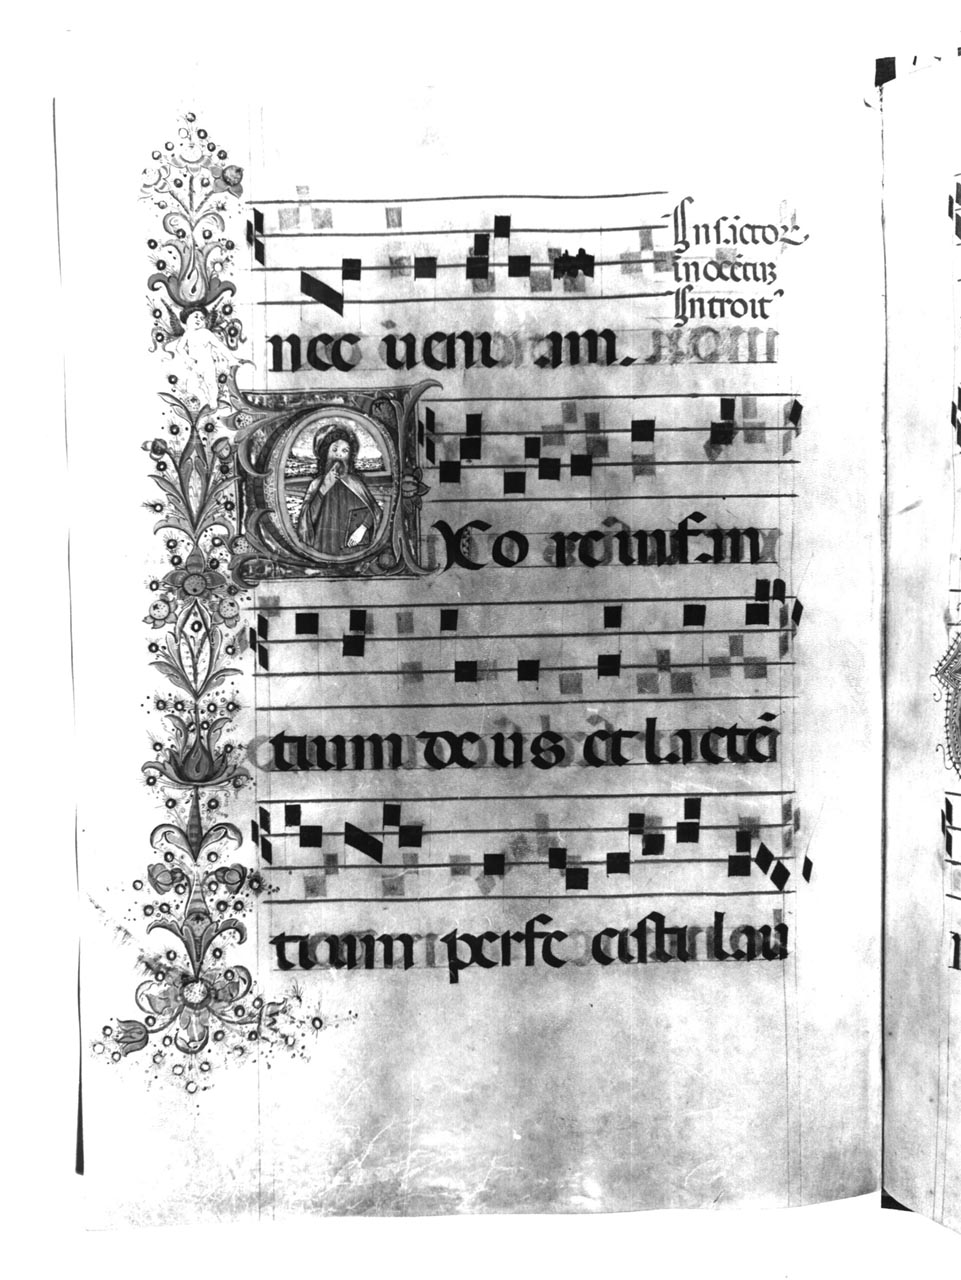 In sc̄toꝝ
inocētiū
Introit⁹
nec ueni am.
EX o re infan
tium de us et lactē
tium perfe cisti lau